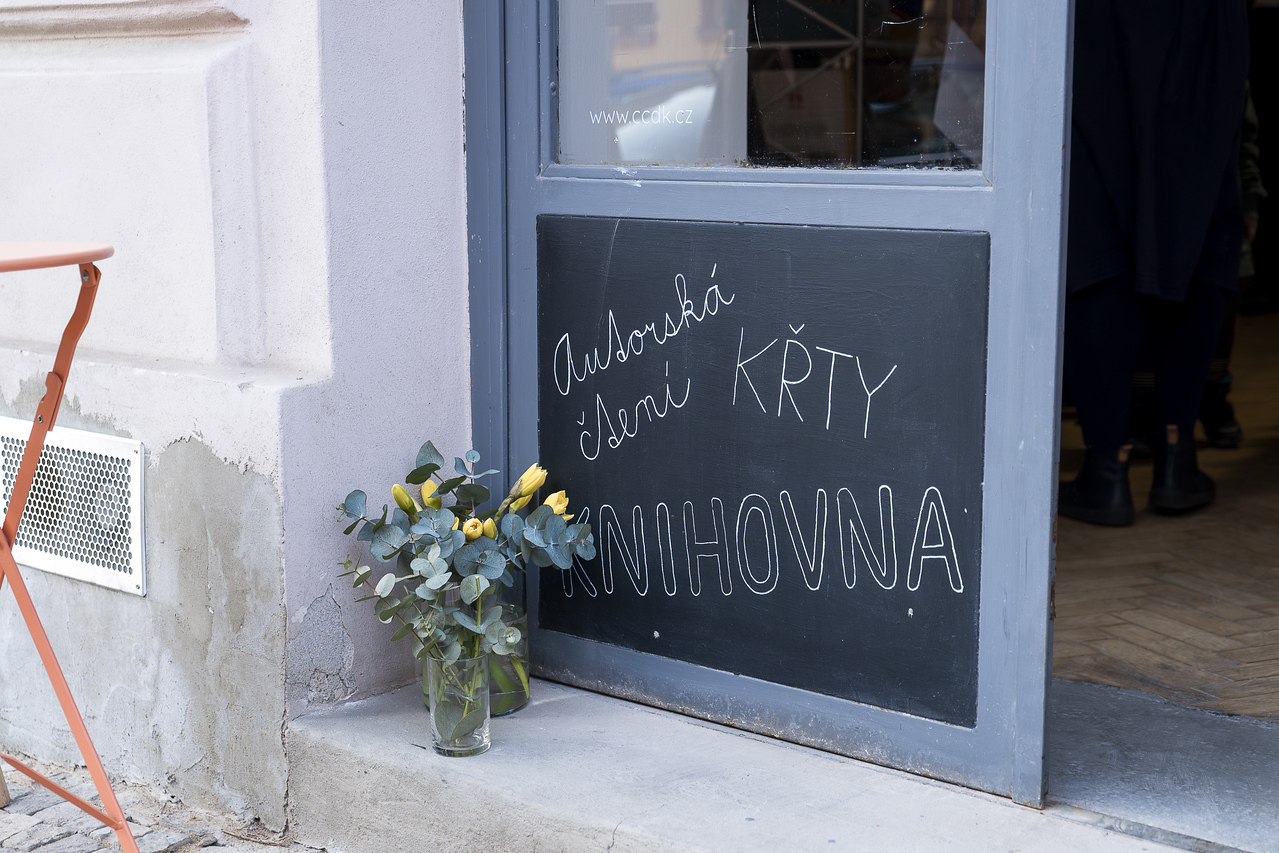 www.ccdk.cz
Autorská
čtení KŘTY
KNIHOVNA